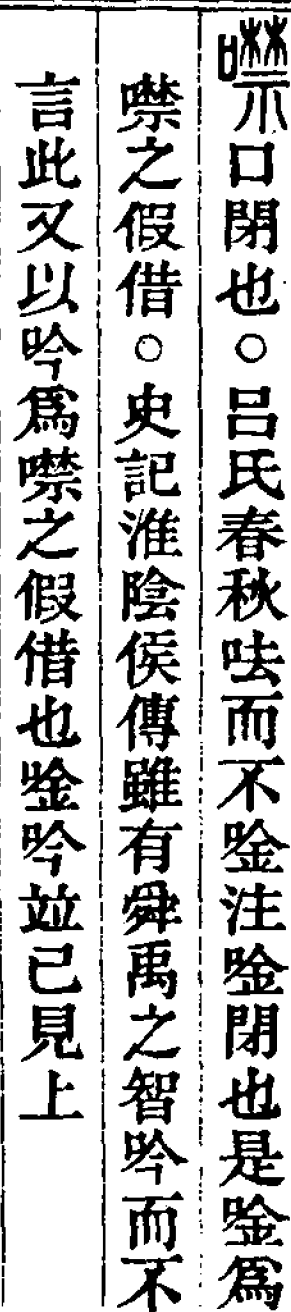 噤口閉也○呂氏春秋呿而不唫注唫閉也是唫爲
噤之假借○史記淮陰侯傳雖有舜禹之智吟而不
言此又以吟爲噤之假借也唫吟竝已見上